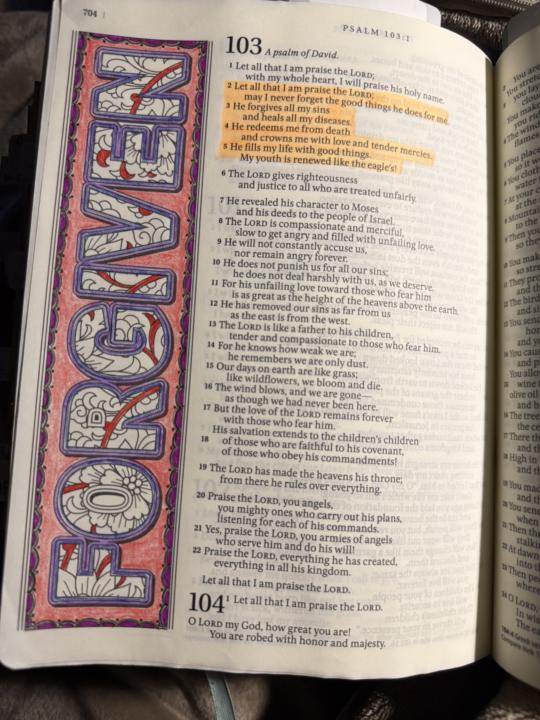 704
PSALM 103:1
FORGIVEN
103 A psalm of David.
1 Let all that I am praise the LORD;
with my whole heart, I will praise his holy name.
2 Let all that I am praise the LORD;
may I never forget the good things he does for me.
3 He forgives all my sins
and heals all my diseases.
4 He redeems me from death
and crowns me with love and tender mercies.
5 He fills my life with good things.
My youth is renewed like the eagle's!
6 The LORD gives righteousness
and justice to all who are treated unfairly.
7 He revealed his character to Moses
and his deeds to the people of Israel.
8 The LORD is compassionate and merciful,
slow to get angry and filled with unfailing love.
9 He will not constantly accuse us,
nor remain angry forever.
10 He does not punish us for all our sins;
he does not deal harshly with us, as we deserve.
11 For his unfailing love toward those who fear him
is as great as the height of the heavens above the earth.
12 He has removed our sins as far from us
as the east is from the west.
13 The LORD is like a father to his children,
tender and compassionate to those who fear him.
14 For he knows how weak we are;
he remembers we are only dust.
15 Our days on earth are like grass;
like wildflowers, we bloom and die.
16 The wind blows, and we are gone—
as though we had never been here.
17 But the love of the LORD remains forever
with those who fear him.
His salvation extends to the children's children
18 of those who are faithful to his covenant,
of those who obey his commandments!
19 The LORD has made the heavens his throne;
from there he rules over everything.
20 Praise the LORD, you angels,
you mighty ones who carry out his plans,
listening for each of his commands.
21 Yes, praise the LORD, you armies of angels
who serve him and do his will!
22 Praise the LORD, everything he has created,
everything in all his kingdom.
Let all that I am praise the LORD.
104 1 Let all that I am praise the LORD.
O LORD my God, how great you are!
You are robed with honor and majesty.